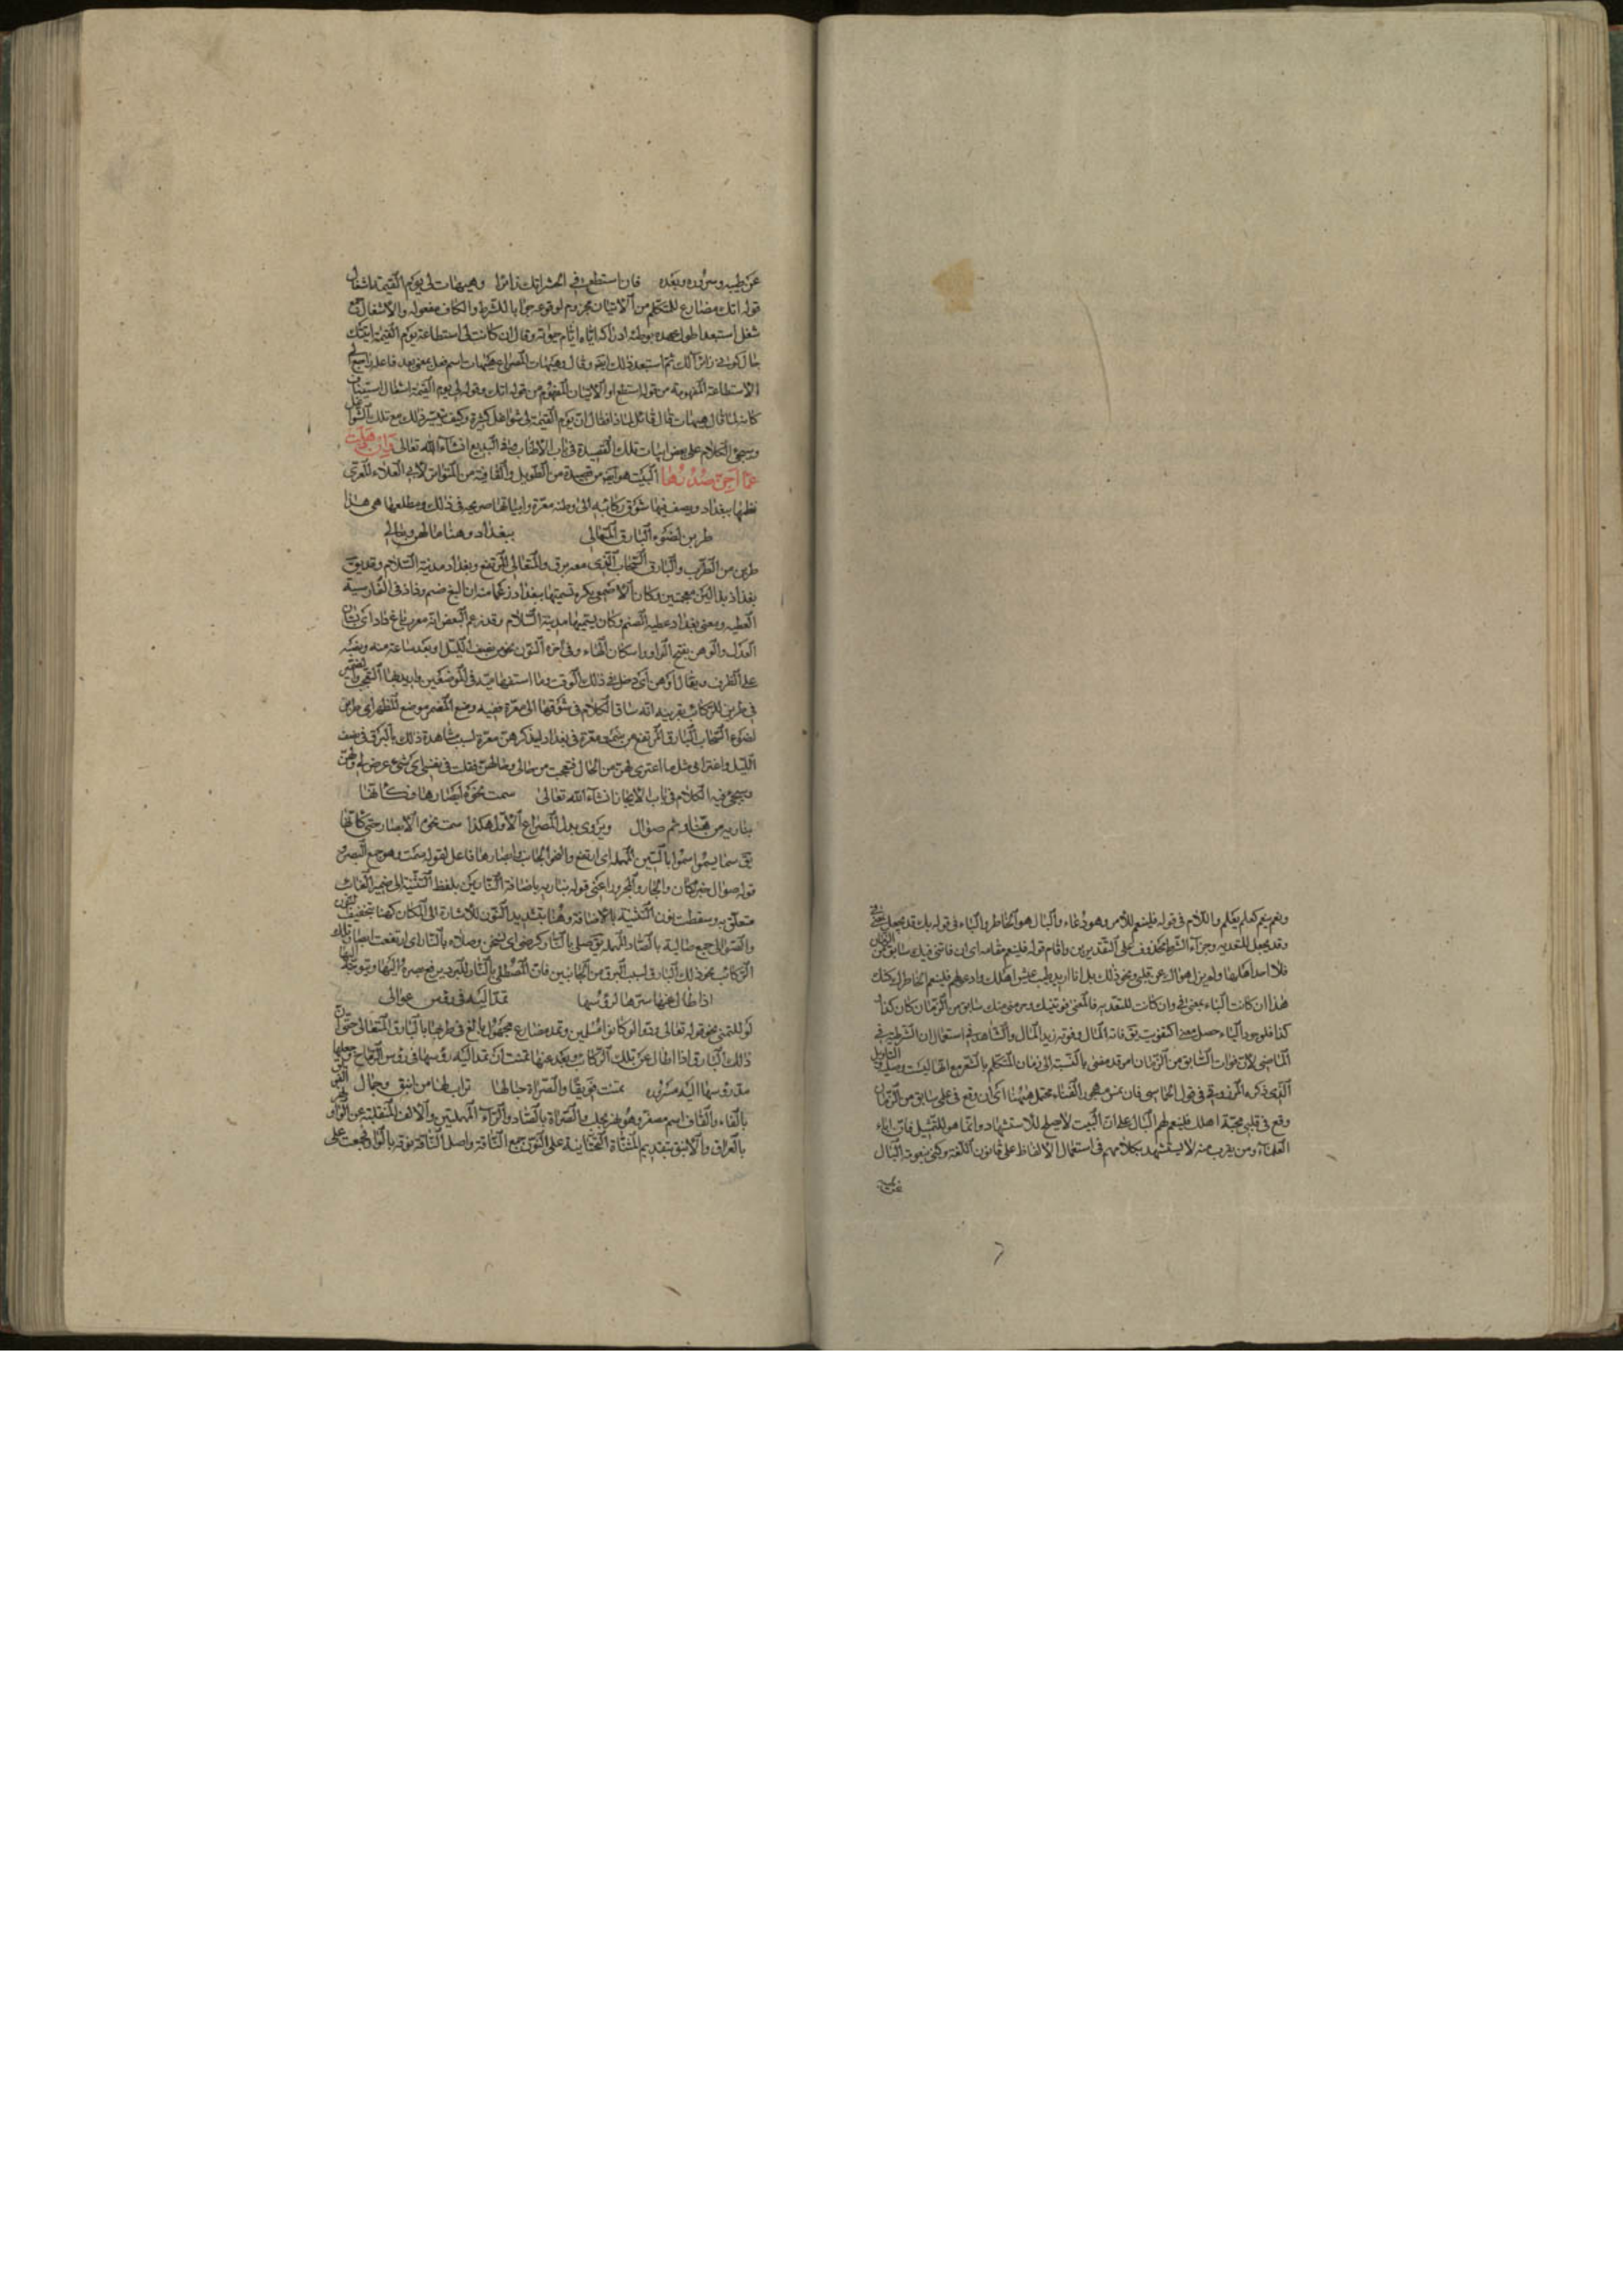 ونعم ينعم كعلم يعلم واللام في قوله فلينعم للأمر وهو دعاء والبال هو الخاطر والباء في قوله بك قد يجعل
وقد يجعل للتعدية وجزآء الشرط محذوف على التقديرين واقام قوله فلينعم مقامه اى ان فاتنى فيك سابق من
فلا احد اهلها ولم يزل هواك عن قلبى ونحو ذلك بل انا اريد طيب عيش اهلك وادعو لهم فلينعم الخاطر لذلك
هذا ان كانت الباء بمعنى فى وان كانت للتعدية فالمعنى منك سابق من الزمان كان كذا
كذا فلوجود الباء حصل يق فاته المال وفوته زيد المال والشاهد فى استعمال ان الشرطية فى
الماضى لان فوات السابق من الزمان امر قد مضى بالنسبة الى زمان المتكلم بالشعر مع انها ليست
الذى ذكره المرزوقى فى قول الحماسى فان يمس مهجور الفناء محتمل ههنا اى ان وقع فى على سابق من الزمان
وقع فى قلبى محبة اهلك فلينعم لهم البال على ان البيت لا يصلح للاستشهاد وانما هو للتمثيل فان اباء
العلاء ومن يقرب منه لا يستشهد بكلامهم فى استعمال الالفاظ على قانون اللغة وكنى بنعومة البال
عن طيبه وسروره وبعده فان استطع فى الحشر اتك زائرا وهيهات لى يوم القيمة اشغال
قوله اتك مضارع للمتكلم من الاتيان مجزوم لوقوعه جوابا للشرط والكاف مفعوله والاشغال جمع
شغل استبعد اطول عهده بوطنه ادراكه اياه ايام حيوته وقال ان كانت لى استطاعة يوم القيمة اتيتك
حال كونى زائرا لك ثم استبعد ذلك ايضا وقال وهيهات المصراع هيهات اسم فعل بمعنى بعد فاعله راجع الى
الاستطاعة المفهومة من قوله استطع او الاتيان المفهوم من قوله اتك وقوله لى يوم القيمة اشغال استيناف
كانه لما قال هيهات قال قائل لماذا فقال ان يوم القيمة لى شواغل كثيرة وكيف يتيسر ذلك مع تلك الشواغل
وسيجئ الكلام على بعض ابيات تلك القصيدة فى باب الاطناب وفى البديع انشآء الله تعالى
البيت هو ايضا من قصيدة من الطويل والقافية من المتواتر لابى العلاء المعرى
نظمها ببغداد ويصف فيها شوق ركائبه الى وطنه معرة وابياتها صريحة فى ذلك ومطلعها هى هذا
طربن لضوء البارق المتعالى ببغداد وهنا ما لهن ومالى
طربن من الطرب والبارق السحاب الذى معه برق والمتعالى المرتفع وبغداد مدينة السلام وقد يق
بغداذ بذالين معجمتين وكان الاصمعى يكره تسميتها ببغداد زعما منه ان البغ صنم وداد فى الفارسية
العطية ومعنى بغداد عطية الصنم وكان يسميها مدينة السلام وقد زعم البعض انه معرب باغ داد اى بستان
العدل والوهن بفتح الواو واسكان الهاء وفى اخره النون نحو من نصف الليل او بعد ساعة منه ونصبه
على الظرف ويقال اوهن اى دخل فى ذلك الوقت وما استفهامية فى الموضعين يريد بها التعجب والضمير
فى طربن للركائب بقرينة انه ساق الكلام فى شوقها الى معرة ففيه وضع المضمر موضع المظهر اى طربن
لضوء السحاب البارق المرتفع من سمت معرة فى بغداد ليذكرهن معرة لسبب مشاهدة ذلك بالبرق فى نصف
الليل واعترانى مثل ما اعترى لهن من الحال فتعجبت من حالى وحالهن فقلت فى نفسى اى شئ عرض لى ولهن
وسيجئ فيه الكلام فى باب الايجاز انشآء الله تعالى سمت نحوه ابصارها فكأنها
بناريه من هنا وثم صوال ويروى بدل المصراع الاول هكذا سمت نحوه الابصار حتى كانها
يق سما يسمو سموا بالسين المهملة اى ارتفع والنحو الجانب وابصارها فاعل لقوله سمت وهو جمع البصر و
قوله صوال خبر كان والجار والمجرور اعنى قوله بناريه باضافة النارين بلفظ التثنية الى ضمير الغائب
متعلق به وسقطت نون التثنية بالاضافة وهنا بتشديد النون للاشارة الى المكان كهنا بتخفيف النون
والصوالى جمع صالية بالصاد المهملة يق صلى بالنار كرضى اى سخن وصلاه بالنار اى ارتفعت ابصار تلك
الركائب نحو ذلك البارق لسبب البرق من الجانبين فان المصطلى بالنار للبرد يرفع بصره اليها ويتوجه اليها
اذا طال عنها سرها لو رؤسها تمد اليه فى رؤس عوالى
لو للتمنى نحو قوله تعالى ودوا لو كانوا مسلمين وتمد مضارع مجهول بالغ فى طربها بالبارق المتعالى حتى ان
ذلك البارق اذا اطال عن تلك الركائب وبعد عنها تمنت ان تمد اليه رؤسها فى رؤس الرماح وجعلها
مد رؤسها اليه مسرة تمنت قويقا والصراة حيالها تراب لها من اينق وجمال
بالفاء والقاف اسم مصغر وهو نهر بحلب والصراة بالصاد والرآء المهملتين والالف المنقلبة عن الواو نهر
بالعراق والاينق بتقديم المثناة التحتانية على النون جمع الناقة واصل الناقة نوقة بالواو فجمعت على